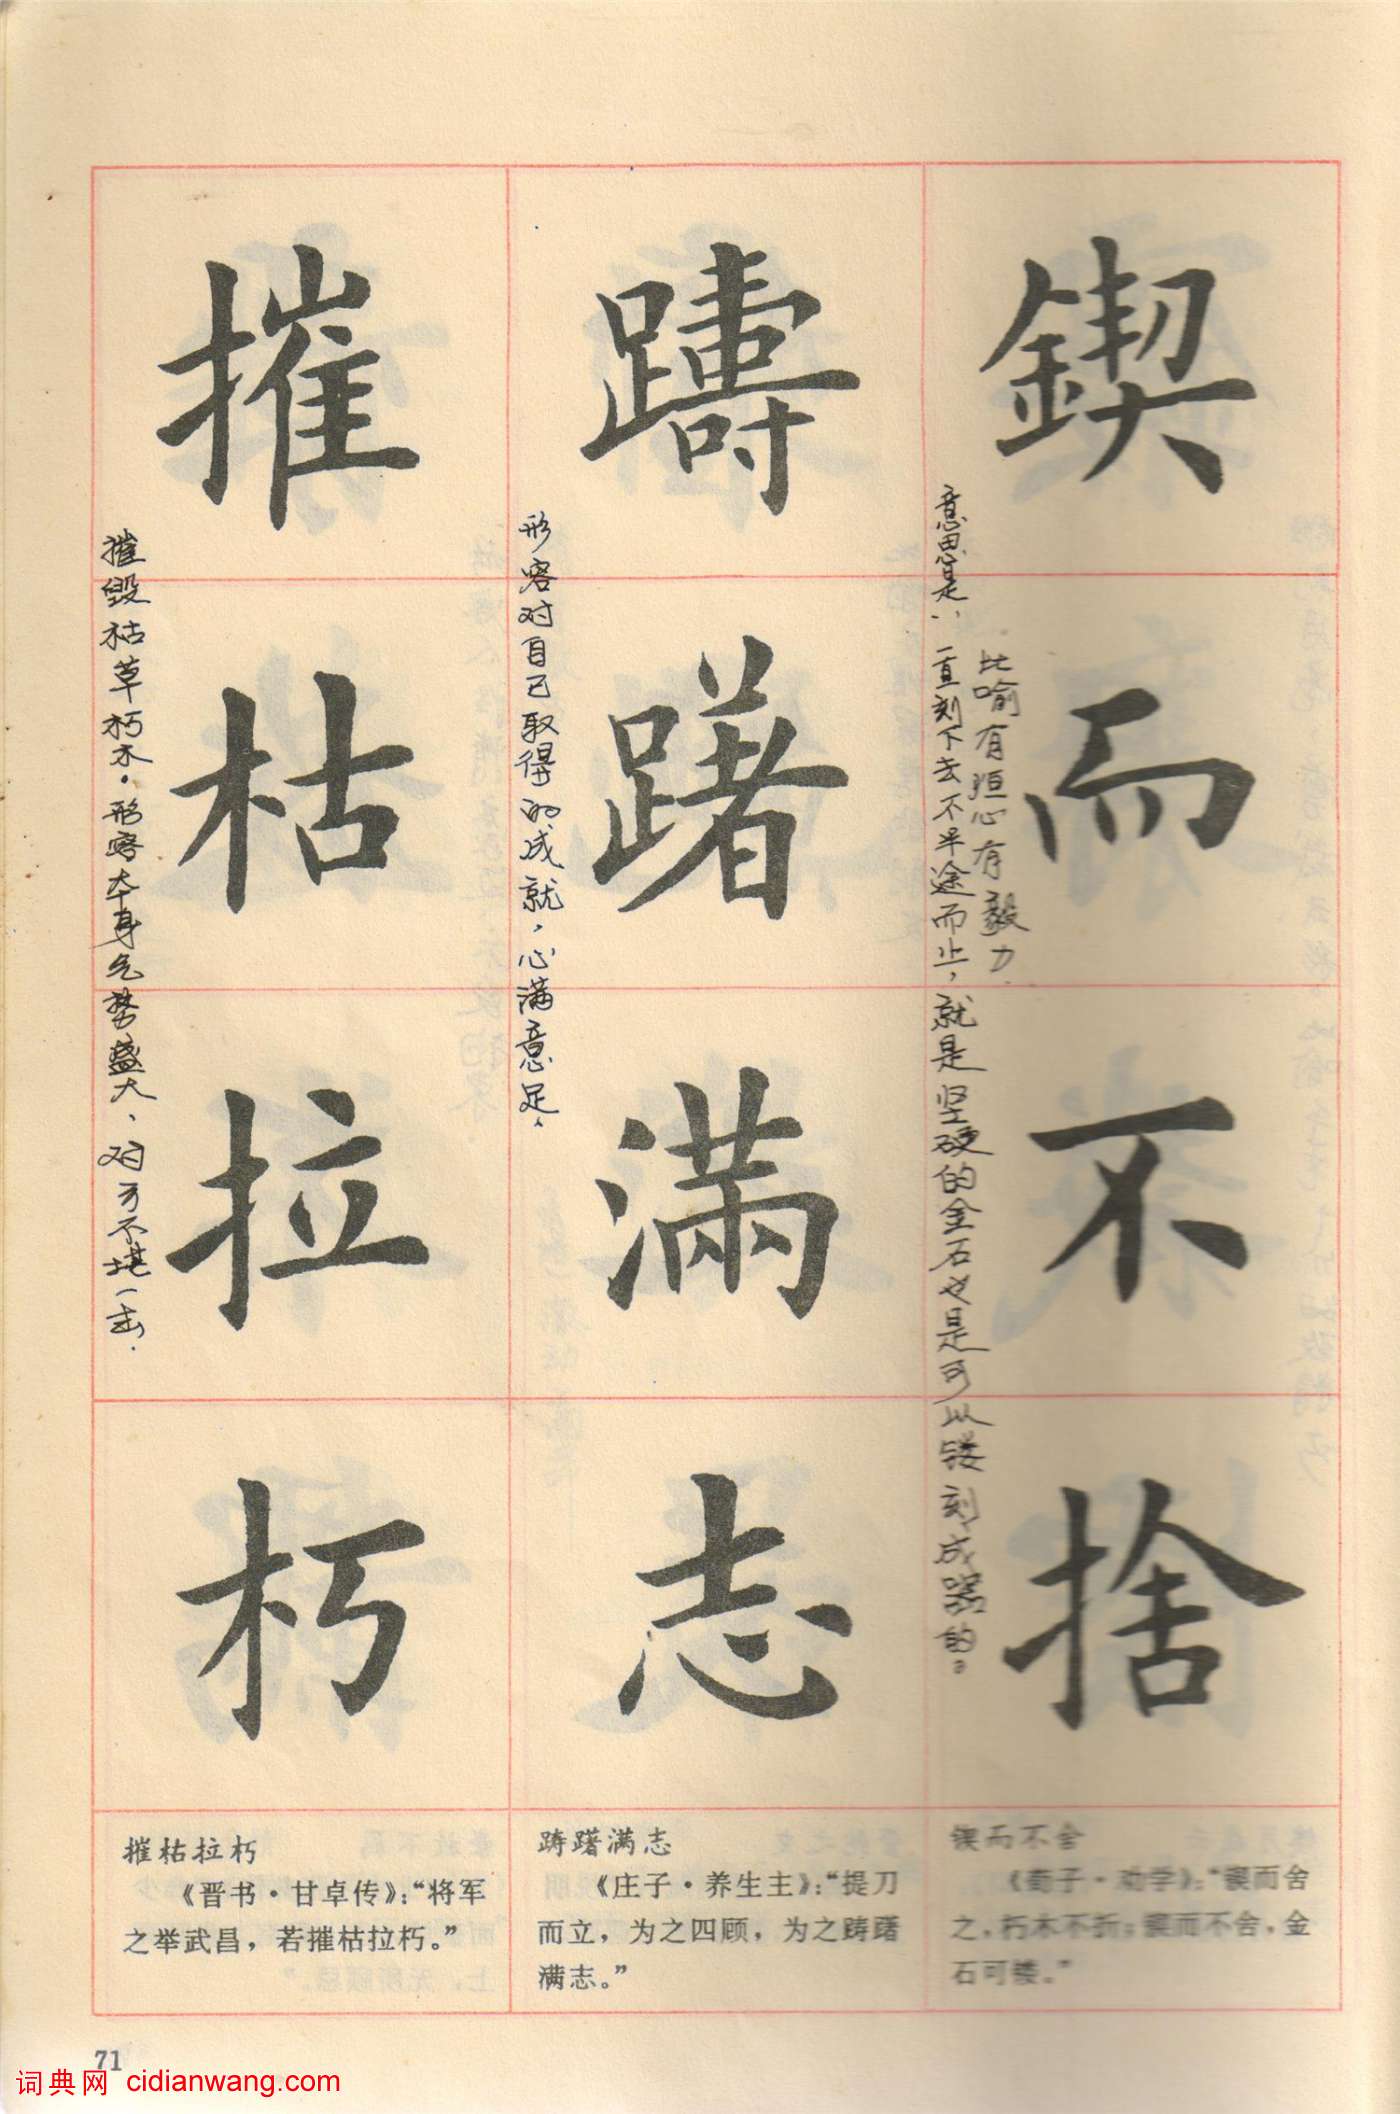 鍥而不捨
意思是，一直刻下去不半途而止，就是坚硬的金石也是可以镂刻成器的。
比喻有恒心有毅力.
躊躇滿志
形容对自已取得的成就，心满意足、
摧枯拉朽
摧毁枯草朽木。形容本身气势盛大、对方不堪一击.
锲而不舍
《荀子·劝学》：“锲而舍
之，朽木不折；锲而不舍，金
石可镂。”
踌躇满志
《庄子·养生主》：“提刀
而立，为之四顾，为之踌躇
满志。”
摧枯拉朽
《晋书·甘卓传》：“将军
之举武昌，若摧枯拉朽。”
71
词典网 cidianwang.com